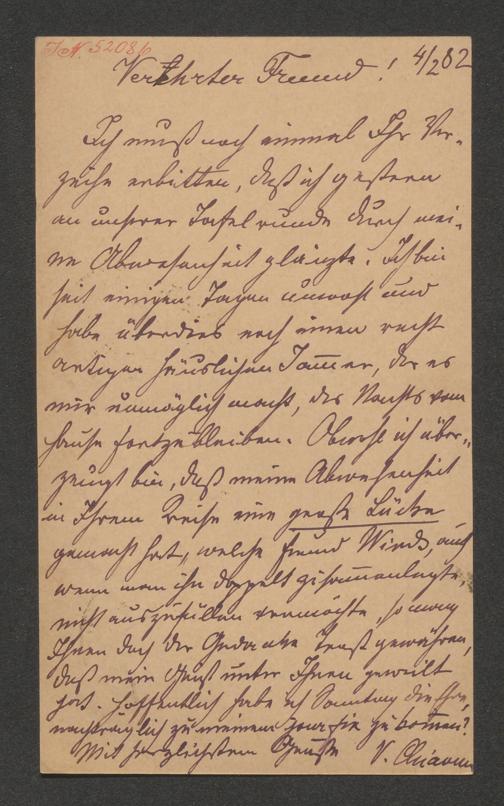 I.N. 52086
Verehrter Freund! 4/2 82
Ich muß noch einmal Ihr Ver-
zeihn erbitten, daß ich gestern
an unserer Tafelrunde durch mei-
ne Abwesenheit glänzte. Ich bin
seit einigen Tagen unwohl und
habe überdies noch einen recht
artigen häuslichen Jam̄er, der es
mir unmöglich macht, des Nachts vom
Hause fortzubleiben. Obwohl ich über-
zeugt bin, daß meine Abwesenheit
in Ihrem Kreise eine große Lücke
gemacht hat, welche Freund Winds, auch
wenn man ihn doppelt zusammenlegte,
nicht auszufüllen vermöchte, so mag
Ihnen doch der Gedanke Trost gewähren,
daß mein Geist unter Ihnen geweilt
hat. Hoffentlich habe ich Sonntag die Ehre,
nachträglich zu meinem Jourfix zu kom̄en?
Mit herzlichstem Gruße V. Chiavacci